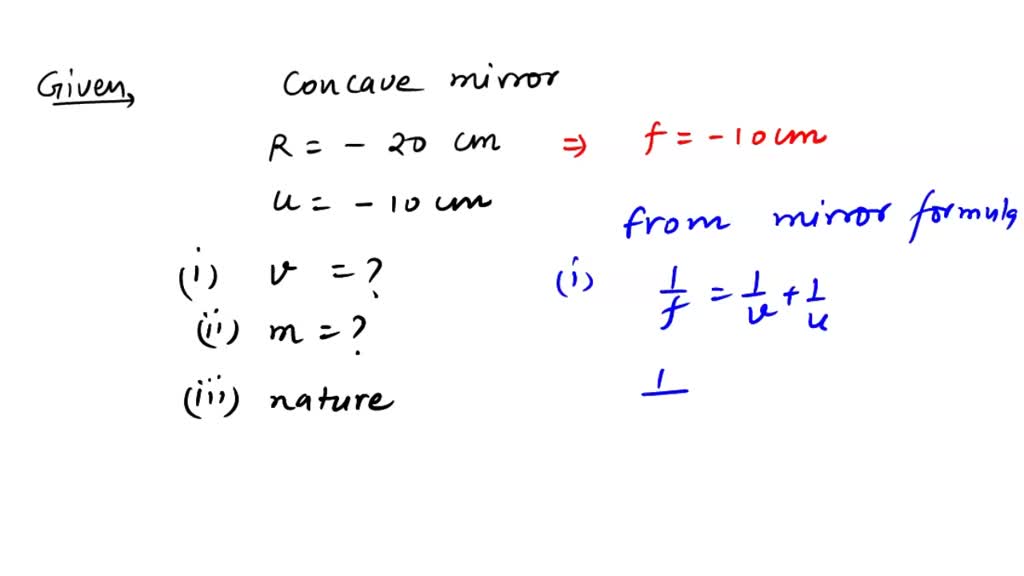 Given, Concave mirror
R = - 20 cm ⇒ f = - 10 cm
u = - 10 cm
from mirror formula
(i) v = ?
(i) 1/f = 1/v + 1/u
(ii) m = ?
(iii) nature
1